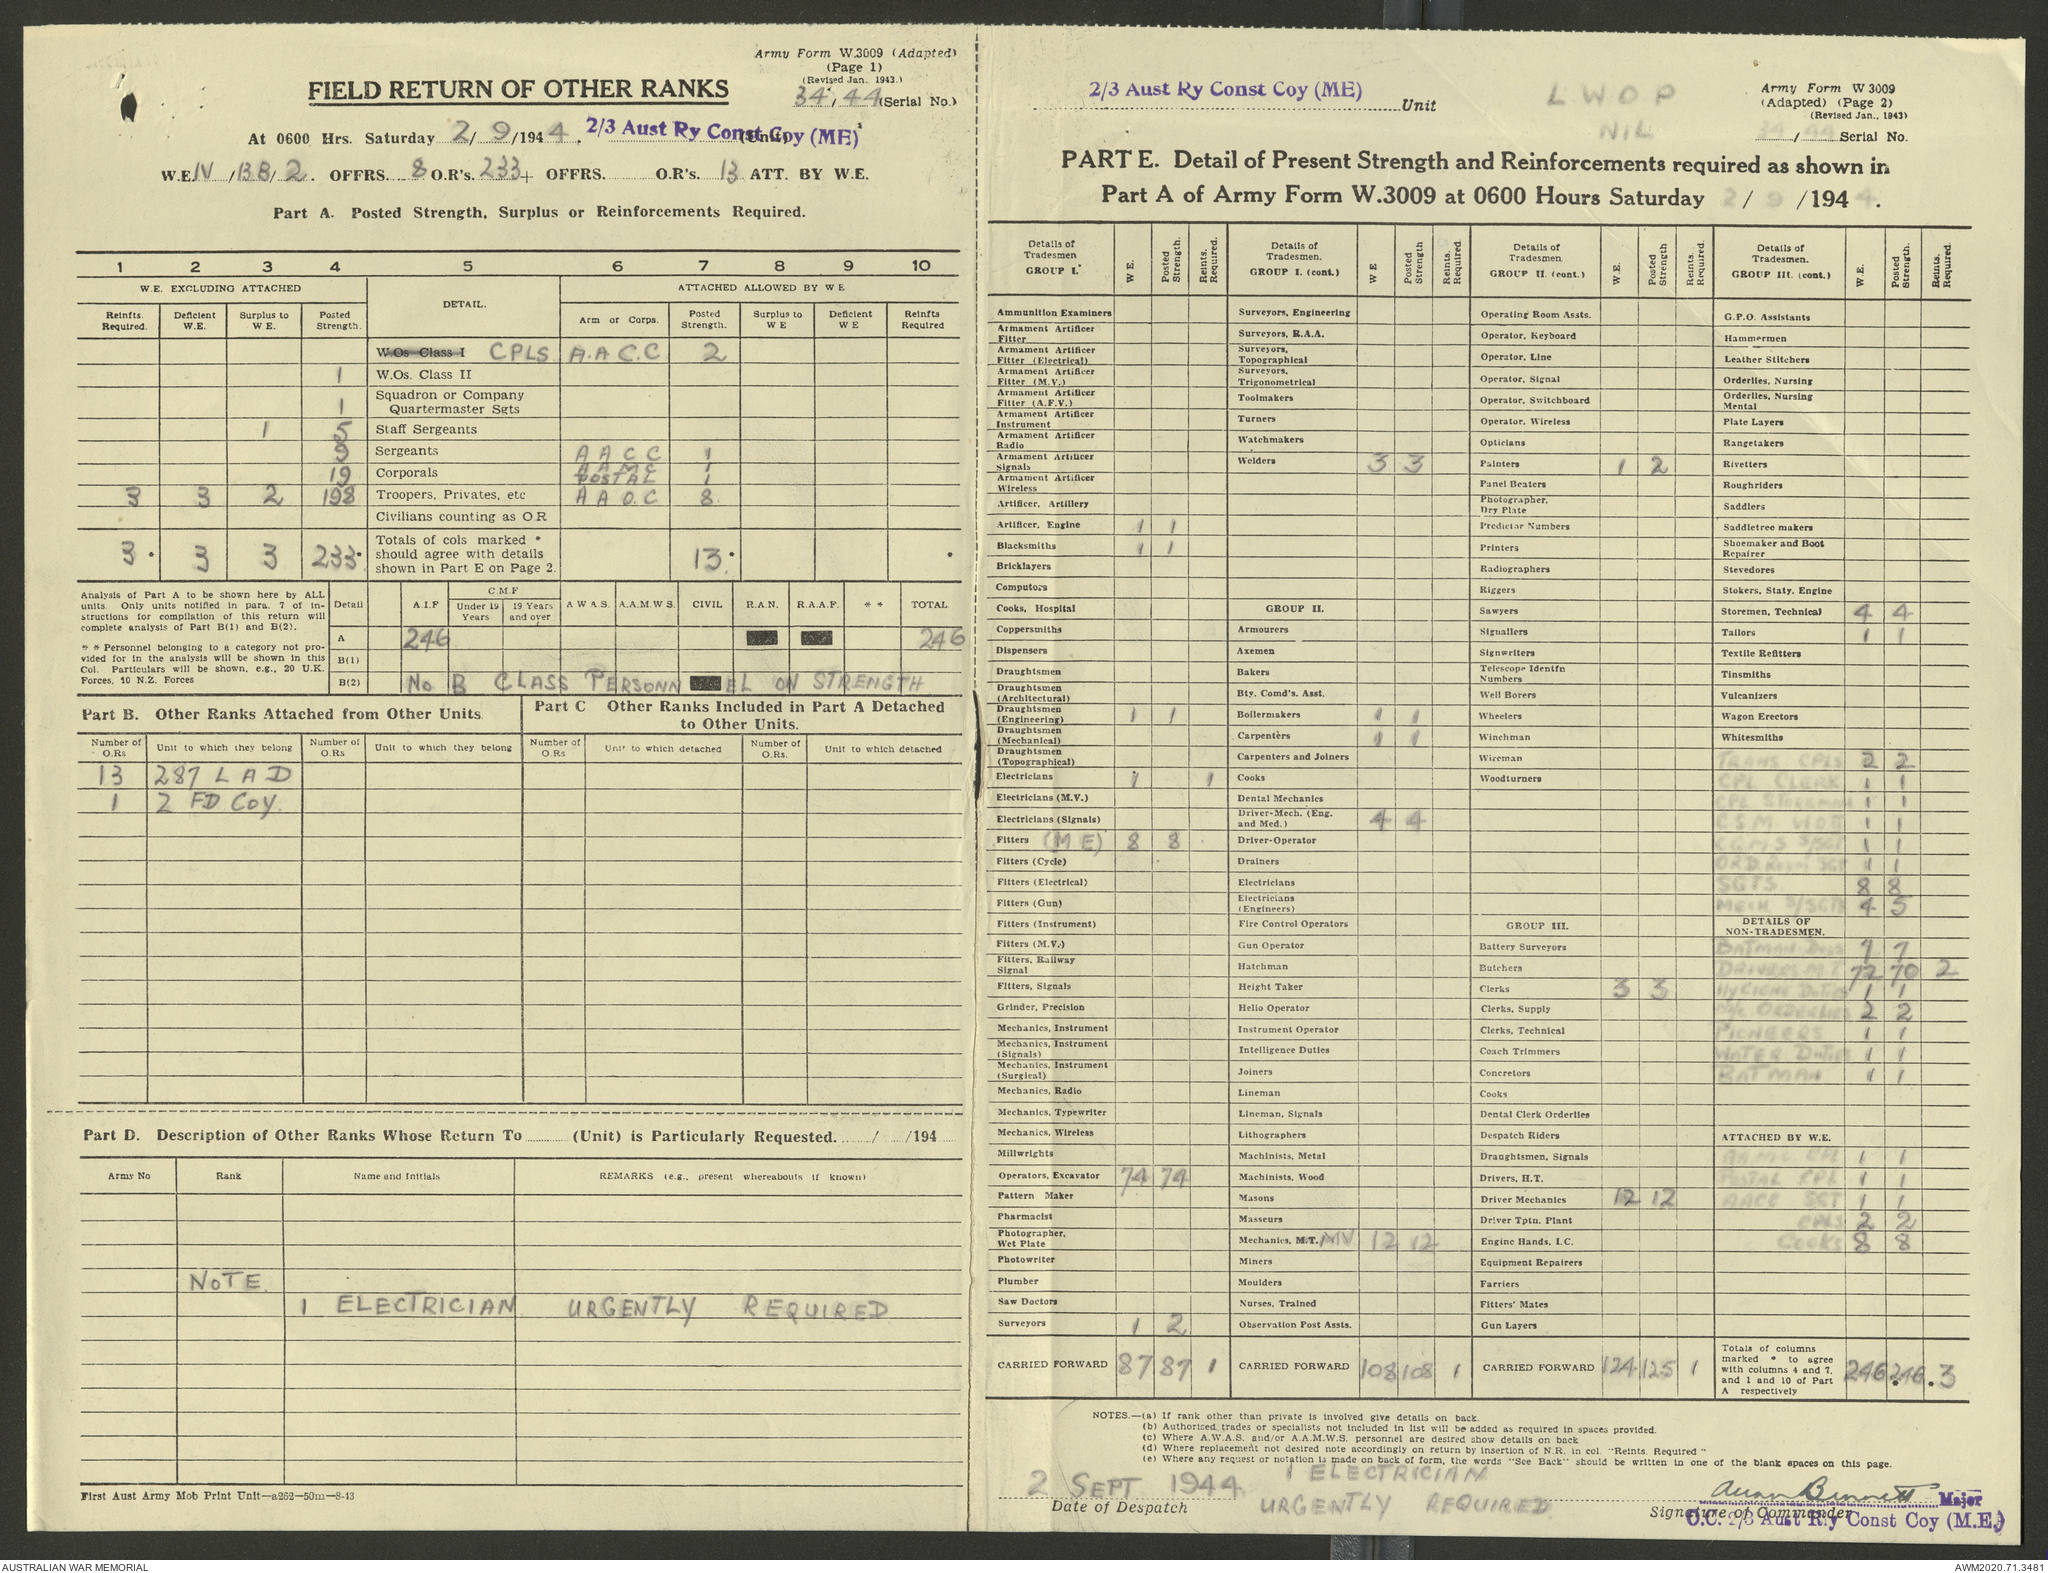 Army Form W.3009 (Adapted)
(Page 1)
(Revised Jan. 1943.)
FIELD RETURN OF OTHER RANKS
34, 44 (Serial No.)
At 0600 Hrs. Saturday 2/ 9/1944. 2/3 Aust Ry Const Coy (ME) (Unit)
W.E. IV /13B/2. OFFRS. 8 O.R's. 233 + OFFRS. O.R's. 13 ATT. BY W.E.
Part A. Posted Strength, Surplus or Reinforcements Required.
1 2 3 4 5 6 7 8 9 10
W.E. EXCLUDING ATTACHED DETAIL. ATTACHED ALLOWED BY W E
Reinfts. Required. Deficient W.E. Surplus to W E. Posted Strength. Arm or Corps. Posted Strength. Surplus to W E Deficient W E Reinfts Required
W.Os Class I CPLS A.A.C.C 2
1 W.Os. Class II
1 Squadron or Company Quartermaster Sgts
1 5 Staff Sergeants
9 Sergeants A A C C 1
19 Corporals A A M C 1
POSTAL 1
3 3 2 198 Troopers, Privates, etc A A O C 8
Civilians counting as O R
3 • 3 3 233 • Totals of cols marked * should agree with details shown in Part E on Page 2. 13 • •
Analysis of Part A to be shown here by ALL
units. Only units notified in para. 7 of in-
structions for compilation of this return will
complete analysis of Part B(1) and B(2).
* * Personnel belonging to a category not pro-
vided for in the analysis will be shown in this
Col. Particulars will be shown, e.g., 20 U.K.
Forces, 10 N.Z. Forces
Detail A.I.F C.M.F Under 19 Years 19 Years and over A W A S. A.A.M.W S. CIVIL R.A.N. R.A.A.F. * * TOTAL
A 246 246
B(1)
B(2) No B CLASS PERSONN EL ON STRENGTH
Part B. Other Ranks Attached from Other Units
Part C Other Ranks Included in Part A Detached
to Other Units.
Number of O.Rs Unit to which they belong Number of O.Rs. Unit to which they belong Number of O.Rs. Unit to which detached Number of O.Rs. Unit to which detached
13 287 L A D
1 2 FD COY.
Part D. Description of Other Ranks Whose Return To (Unit) is Particularly Requested. / /194
Army No Rank Name and Initials REMARKS (e.g., present whereabouts if known)
NOTE
1 ELECTRICIAN URGENTLY REQUIRED
First Aust Army Mob Print Unit—a262—50m—8-13
2/3 Aust Ry Const Coy (ME) Unit
L W O P
NIL
Army Form W 3009
(Adapted) (Page 2)
(Revised Jan., 1943)
34/44 Serial No.
PART E. Detail of Present Strength and Reinforcements required as shown in
Part A of Army Form W.3009 at 0600 Hours Saturday 2/ 9 /1944.
Details of Tradesmen GROUP I.* W E. Posted Strength. Reints. Required.
Ammunition Examiners
Armament Artificer Fitter
Armament Artificer Fitter (Electrical)
Armament Artificer Fitter (M.V.)
Armament Artificer Fitter (A.F.V.)
Armament Artificer Instrument
Armament Artificer Radio
Armament Artificer Signals
Armament Artificer Wireless
Artificer, Artillery
Artificer, Engine 1 1
Blacksmiths 1 1
Bricklayers
Computors
Cooks, Hospital
Coppersmiths
Dispensers
Draughtsmen
Draughtsmen (Architectural)
Draughtsmen (Engineering) 1 1
Draughtsmen (Mechanical)
Draughtsmen (Topographical)
Electricians 1 1
Electricians (M.V.)
Electricians (Signals)
Fitters (M E) 8 8
Fitters (Cycle)
Fitters (Electrical)
Fitters (Gun)
Fitters (Instrument)
Fitters (M.V.)
Fitters, Railway Signal
Fitters, Signals
Grinder, Precision
Mechanics, Instrument
Mechanics, Instrument (Signals)
Mechanics, Instrument (Surgical)
Mechanics, Radio
Mechanics, Typewriter
Mechanics, Wireless
Millwrights
Operators, Excavator 74 74
Pattern Maker
Pharmacist
Photographer, Wet Plate
Photowriter
Plumber
Saw Doctors
Surveyors 1 2
CARRIED FORWARD 87 87 1
Details of Tradesmen. GROUP I. (cont.) W E Posted Strength Reints. Required.
Surveyors, Engineering
Surveyors, R.A.A.
Surveyors, Topographical
Surveyors, Trigonometrical
Toolmakers
Turners
Watchmakers
Welders 3 3
GROUP II.
Armourers
Axemen
Bakers
Bty. Comd's. Asst.
Boilermakers 1 1
Carpenters 1 1
Carpenters and Joiners
Cooks
Dental Mechanics
Driver-Mech. (Eng. and Med.) 4 4
Driver-Operator
Drainers
Electricians
Electricians (Engineers)
Fire Control Operators
Gun Operator
Hatchman
Height Taker
Helio Operator
Instrument Operator
Intelligence Duties
Joiners
Lineman
Lineman, Signals
Lithographers
Machinists, Metal
Machinists, Wood
Masons
Masseurs
Mechanics, M.T. MV 12 12
Miners
Moulders
Nurses, Trained
Observation Post Assts.
CARRIED FORWARD 108 108 1
Details of Tradesmen. GROUP II. (cont.) W E. Posted Strength Reints. Required.
Operating Room Assts.
Operator, Keyboard
Operator, Line
Operator, Signal
Operator, Switchboard
Operator, Wireless
Opticians
Painters 1 2
Panel Beaters
Photographer, Dry Plate
Predictor Numbers
Printers
Radiographers
Riggers
Sawyers
Signallers
Signwriters
Telescope Identfn Numbers
Well Borers
Wheelers
Winchman
Wireman
Woodturners
GROUP III.
Battery Surveyors
Butchers
Clerks 3 3
Clerks, Supply
Clerks, Technical
Coach Trimmers
Concretors
Cooks
Dental Clerk Orderlies
Despatch Riders
Draughtsmen, Signals
Drivers, H.T.
Driver Mechanics 12 12
Driver Tptn. Plant
Engine Hands, I.C.
Equipment Repairers
Farriers
Fitters' Mates
Gun Layers
CARRIED FORWARD 124 125 1
Details of Tradesmen. GROUP III. (cont.) W E. Posted Strength. Reints. Required.
G.P.O. Assistants
Hammermen
Leather Stitchers
Orderlies, Nursing
Orderlies, Nursing Mental
Plate Layers
Rangetakers
Rivetters
Roughriders
Saddlers
Saddletree makers
Shoemaker and Boot Repairer
Stevedores
Stokers, Staty. Engine
Storemen, Technical 4 4
Tailors 1 1
Textile Refitters
Tinsmiths
Vulcanizers
Wagon Erectors
Whitesmiths
TRANS CPLS 2 2
CPL CLERK 1 1
CPL STOREMAN 1 1
C S M W O II 1 1
C Q M S S/SGT 1 1
ORD ROOM SGT 1 1
SGTS. 8 8
MECH S/SGTS 4 5
DETAILS OF NON-TRADESMEN.
BATMAN DVRS 7 7
DRIVERS M T 72 70 2
HYGIENE DUTIES 1 1
ORDERLIES 2 2
PIONEERS 1 1
WATER DUTIES 1 1
BATMAN 1 1
ATTACHED BY W.E.
A.A.M.C. CPL 1 1
POSTAL CPL 1 1
AACC SGT 1 1
CPLS 2 2
COOKS 8 8
Totals of columns marked * to agree with columns 4 and 7, and 1 and 10 of Part A respectively 246 246 • 3
NOTES.—(a) If rank other than private is involved give details on back.
(b) Authorised trades or specialists not included in list will be added as required in spaces provided.
(c) Where A.W.A.S. and/or A.A.M.W.S. personnel are desired show details on back
(d) Where replacement not desired note accordingly on return by insertion of N.R. in col. "Reints. Required"
(e) Where any request or notation is made on back of form, the words "See Back" should be written in one of the blank spaces on this page.
2 SEPT 1944
Date of Despatch
1 ELECTRICIAN
URGENTLY REQUIRED
Major
Signature of Commander
O.C. 2/3 Aust Rly Const Coy (M.E.)
AUSTRALIAN WAR MEMORIAL
AWM2020.71.3481